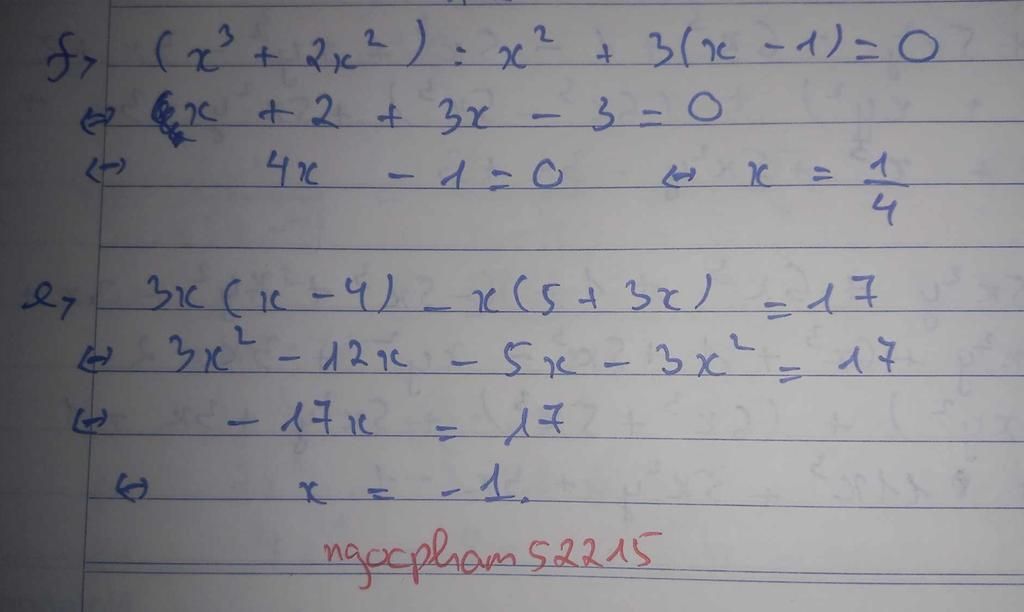 f, (x³ + 2x²) : x² + 3(x - 1) = 0
⇔ x + 2 + 3x - 3 = 0
⇔ 4x - 1 = 0 ⇔ x = 1/4
e, 3x(x - 4) - x(5 + 3x) = 17
⇔ 3x² - 12x - 5x - 3x² = 17
⇔ - 17x = 17
⇔ x = - 1.
ngocpham52215